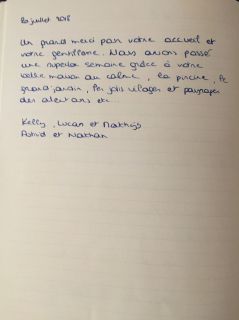 20 juillet 2018
Un grand merci pour votre accueil et
votre gentillesse. Nous avons passé
une superbe semaine grâce à votre
belle maison au calme, la piscine, le
grand jardin, les jolis villages et paysages
des alentours etc...
Kelly, Lucan et Mathijs
Astrid et Nathan